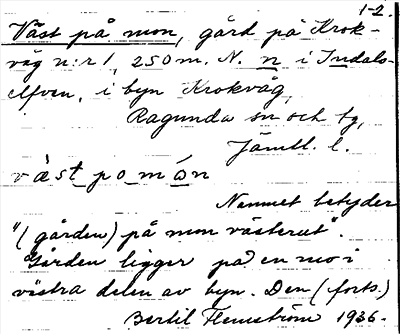 1-2.
Väst på mon, gård på Krok-
våg n:r 1, 250 m. N. n i Indals-
älven, i byn Krokvåg,
Ragunda sn och tg,
Jämtl. l.
väst po món
Namnet betyder
"(gården) på mon västerut".
Gården ligger på en mo i
västra delen av byn. Den (forts.)
Bertil Flemström 1936.